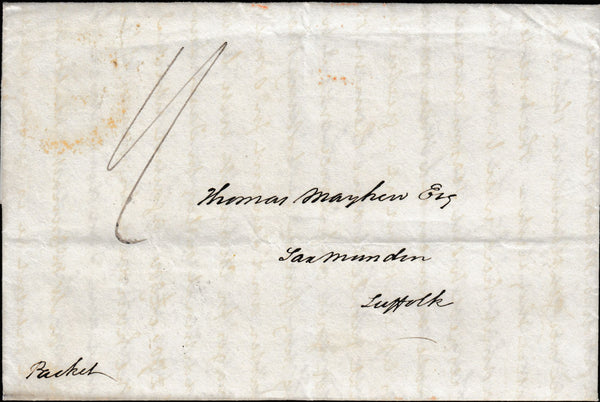 Thomas Mayhew Esq
Saxmunden
Suffolk
Packet